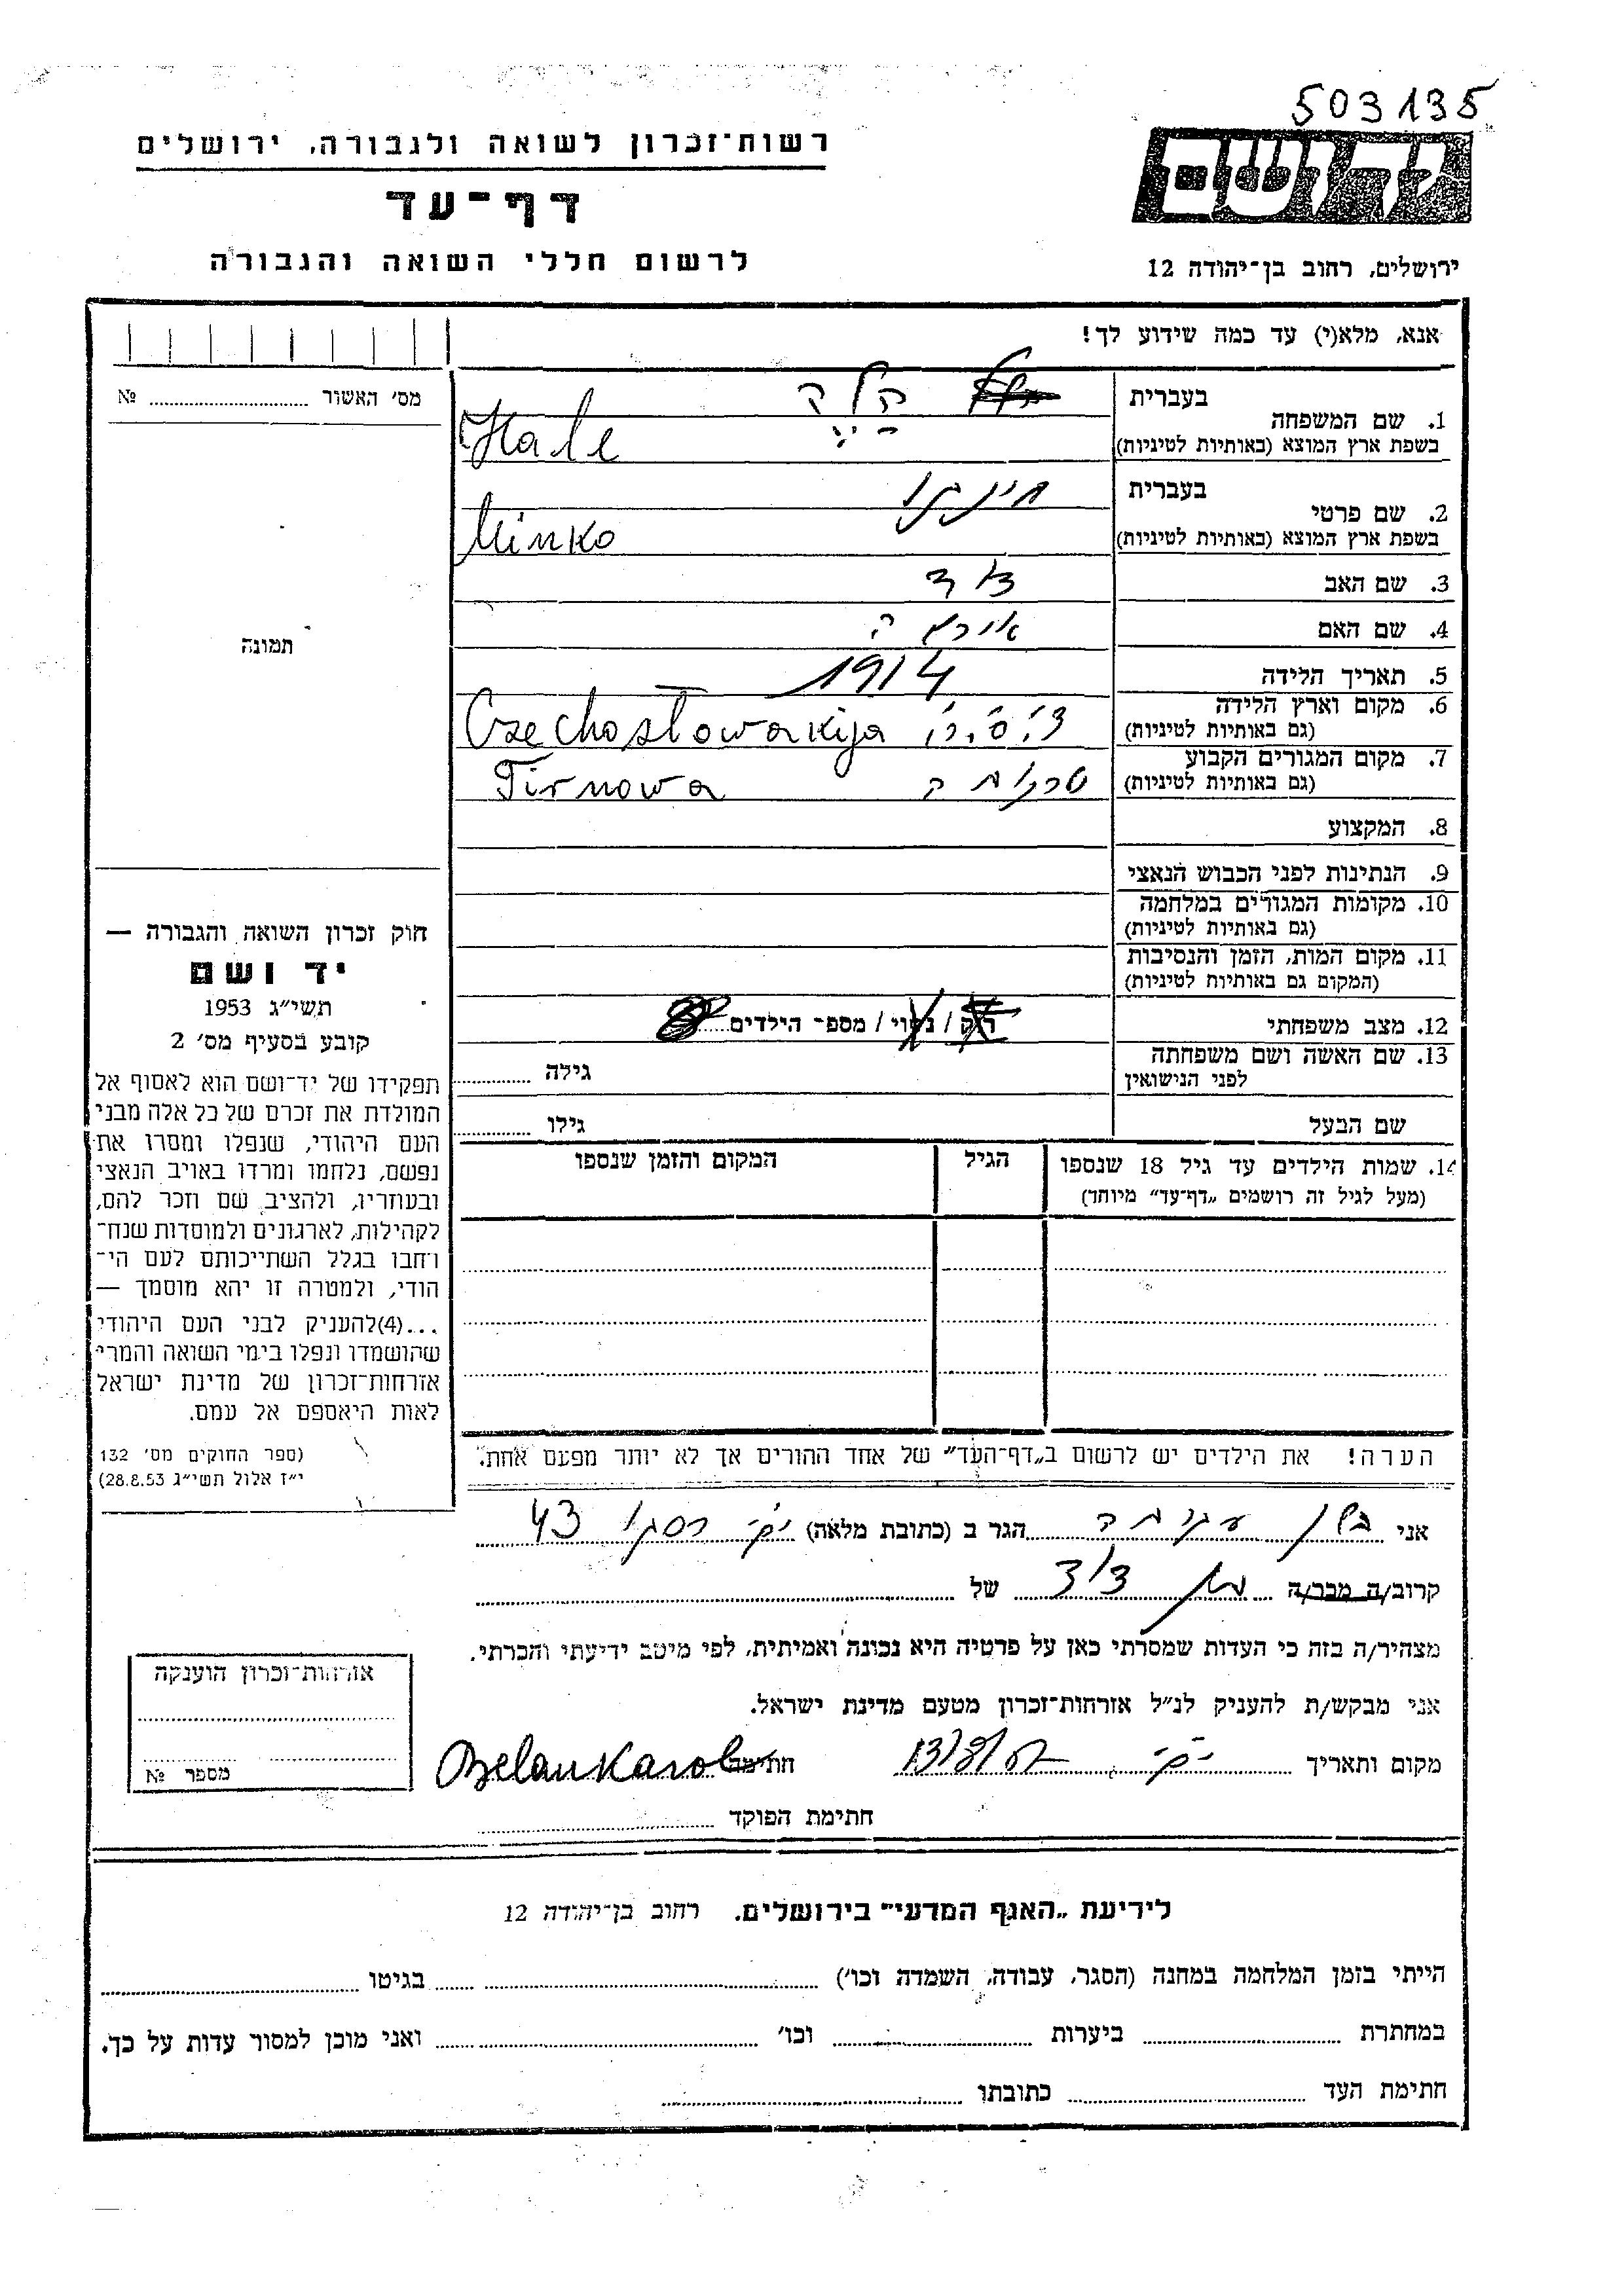 503135
רשות־זכרון לשואה ולגבורה, ירושלים
דף־עד
לרשום חללי השואה והגבורה
ידושם
ירושלים, רחוב בן־יהודה 12
אנא, מלא(י) עד כמה שידוע לך!
מס׳ האשור № 
בעברית
1. שם המשפחה
בשפת ארץ המוצא (באותיות לטיניות)
Hale
בעברית
2. שם פרטי
בשפת ארץ המוצא (באותיות לטיניות)
Minko
3. שם האב דוד
4. שם האם
5. תאריך הלידה 1914
6. מקום וארץ הלידה
(גם באותיות לטיניות)
Czechoslowakija
7. מקום המגורים הקבוע
(גם באותיות לטיניות)
Tirnowa
8. המקצוע
9. הנתינות לפני הכבוש הנאצי
10. מקומות המגורים במלחמה
(גם באותיות לטיניות)
11. מקום המות, הזמן והנסיבות
(המקום גם באותיות לטיניות)
12. מצב משפחתי רוק / נשוי / מספר הילדים
13. שם האשה ושם משפחתה
לפני הנישואין גילה
שם הבעל גילו
14. שמות הילדים עד גיל 18 שנספו הגיל המקום והזמן שנספו
(מעל לגיל זה רושמים „דף־עד״ מיוחד)
הערה! את הילדים יש לרשום ב„דף־העד״ של אחד ההורים אך לא יותר מפעם אחת.
תמונה
חוק זכרון השואה והגבורה —
יד ושם
תשי״ג 1953
קובע בסעיף מס׳ 2
תפקידו של יד־ושם הוא לאסוף אל
המולדת את זכרם של כל אלה מבני
העם היהודי, שנפלו ומסרו את
נפשם, נלחמו ומרדו באויב הנאצי
ובעוזריו, ולהציב שם וזכר להם,
לקהילות, לארגונים ולמוסדות שנח־
רחבו בגלל השתייכותם לעם הי־
הודי, ולמטרה זו יהא מוסמך —
...(4)להעניק לבני העם היהודי
שהושמדו ונפלו בימי השואה והמרי
אזרחות־זכרון של מדינת ישראל
לאות היאספם אל עמם.
(ספר החוקים מס׳ 132
י״ז אלול תשי״ג 28.8.53)
אני הגר ב (כתובת מלאה) 43
קרוב/ה מכר/ה דוד של
מצהיר/ה בזה כי העדות שמסרתי כאן על פרטיה היא נכונה ואמיתית, לפי מיטב ידיעתי והכרתי.
אני מבקש/ת להעניק לנ״ל אזרחות־זכרון מטעם מדינת ישראל.
מקום ותאריך חתימה Belan Karol
חתימת הפוקד
אזרחות־זכרון הוענקה
מספר №
לידיעת „האגף המדעי״ בירושלים. רחוב בן־יהודה 12
הייתי בזמן המלחמה במחנה (הסגר, עבודה, השמדה וכו׳) בגיטו
במחתרת ביערות וכו׳ ואני מוכן למסור עדות על כך.
חתימת העד כתובתו